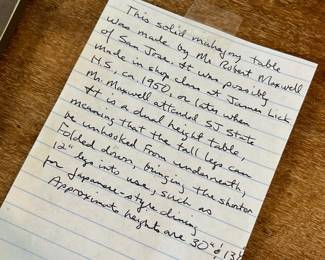 This solid mahogany table
was made by Mr. Robert Maxwell
of San Jose. It was possibly
made in shop class at James Lick
H.S., ca. 1950, or later when
Mr. Maxwell attended SJ State
It is a dual height table,
meaning that the tall legs can
be unhooked from underneath,
folded down, bringing the shorter
12" legs into use, such as
for Japanese-style dining
Approximate heights are 30" & 13"